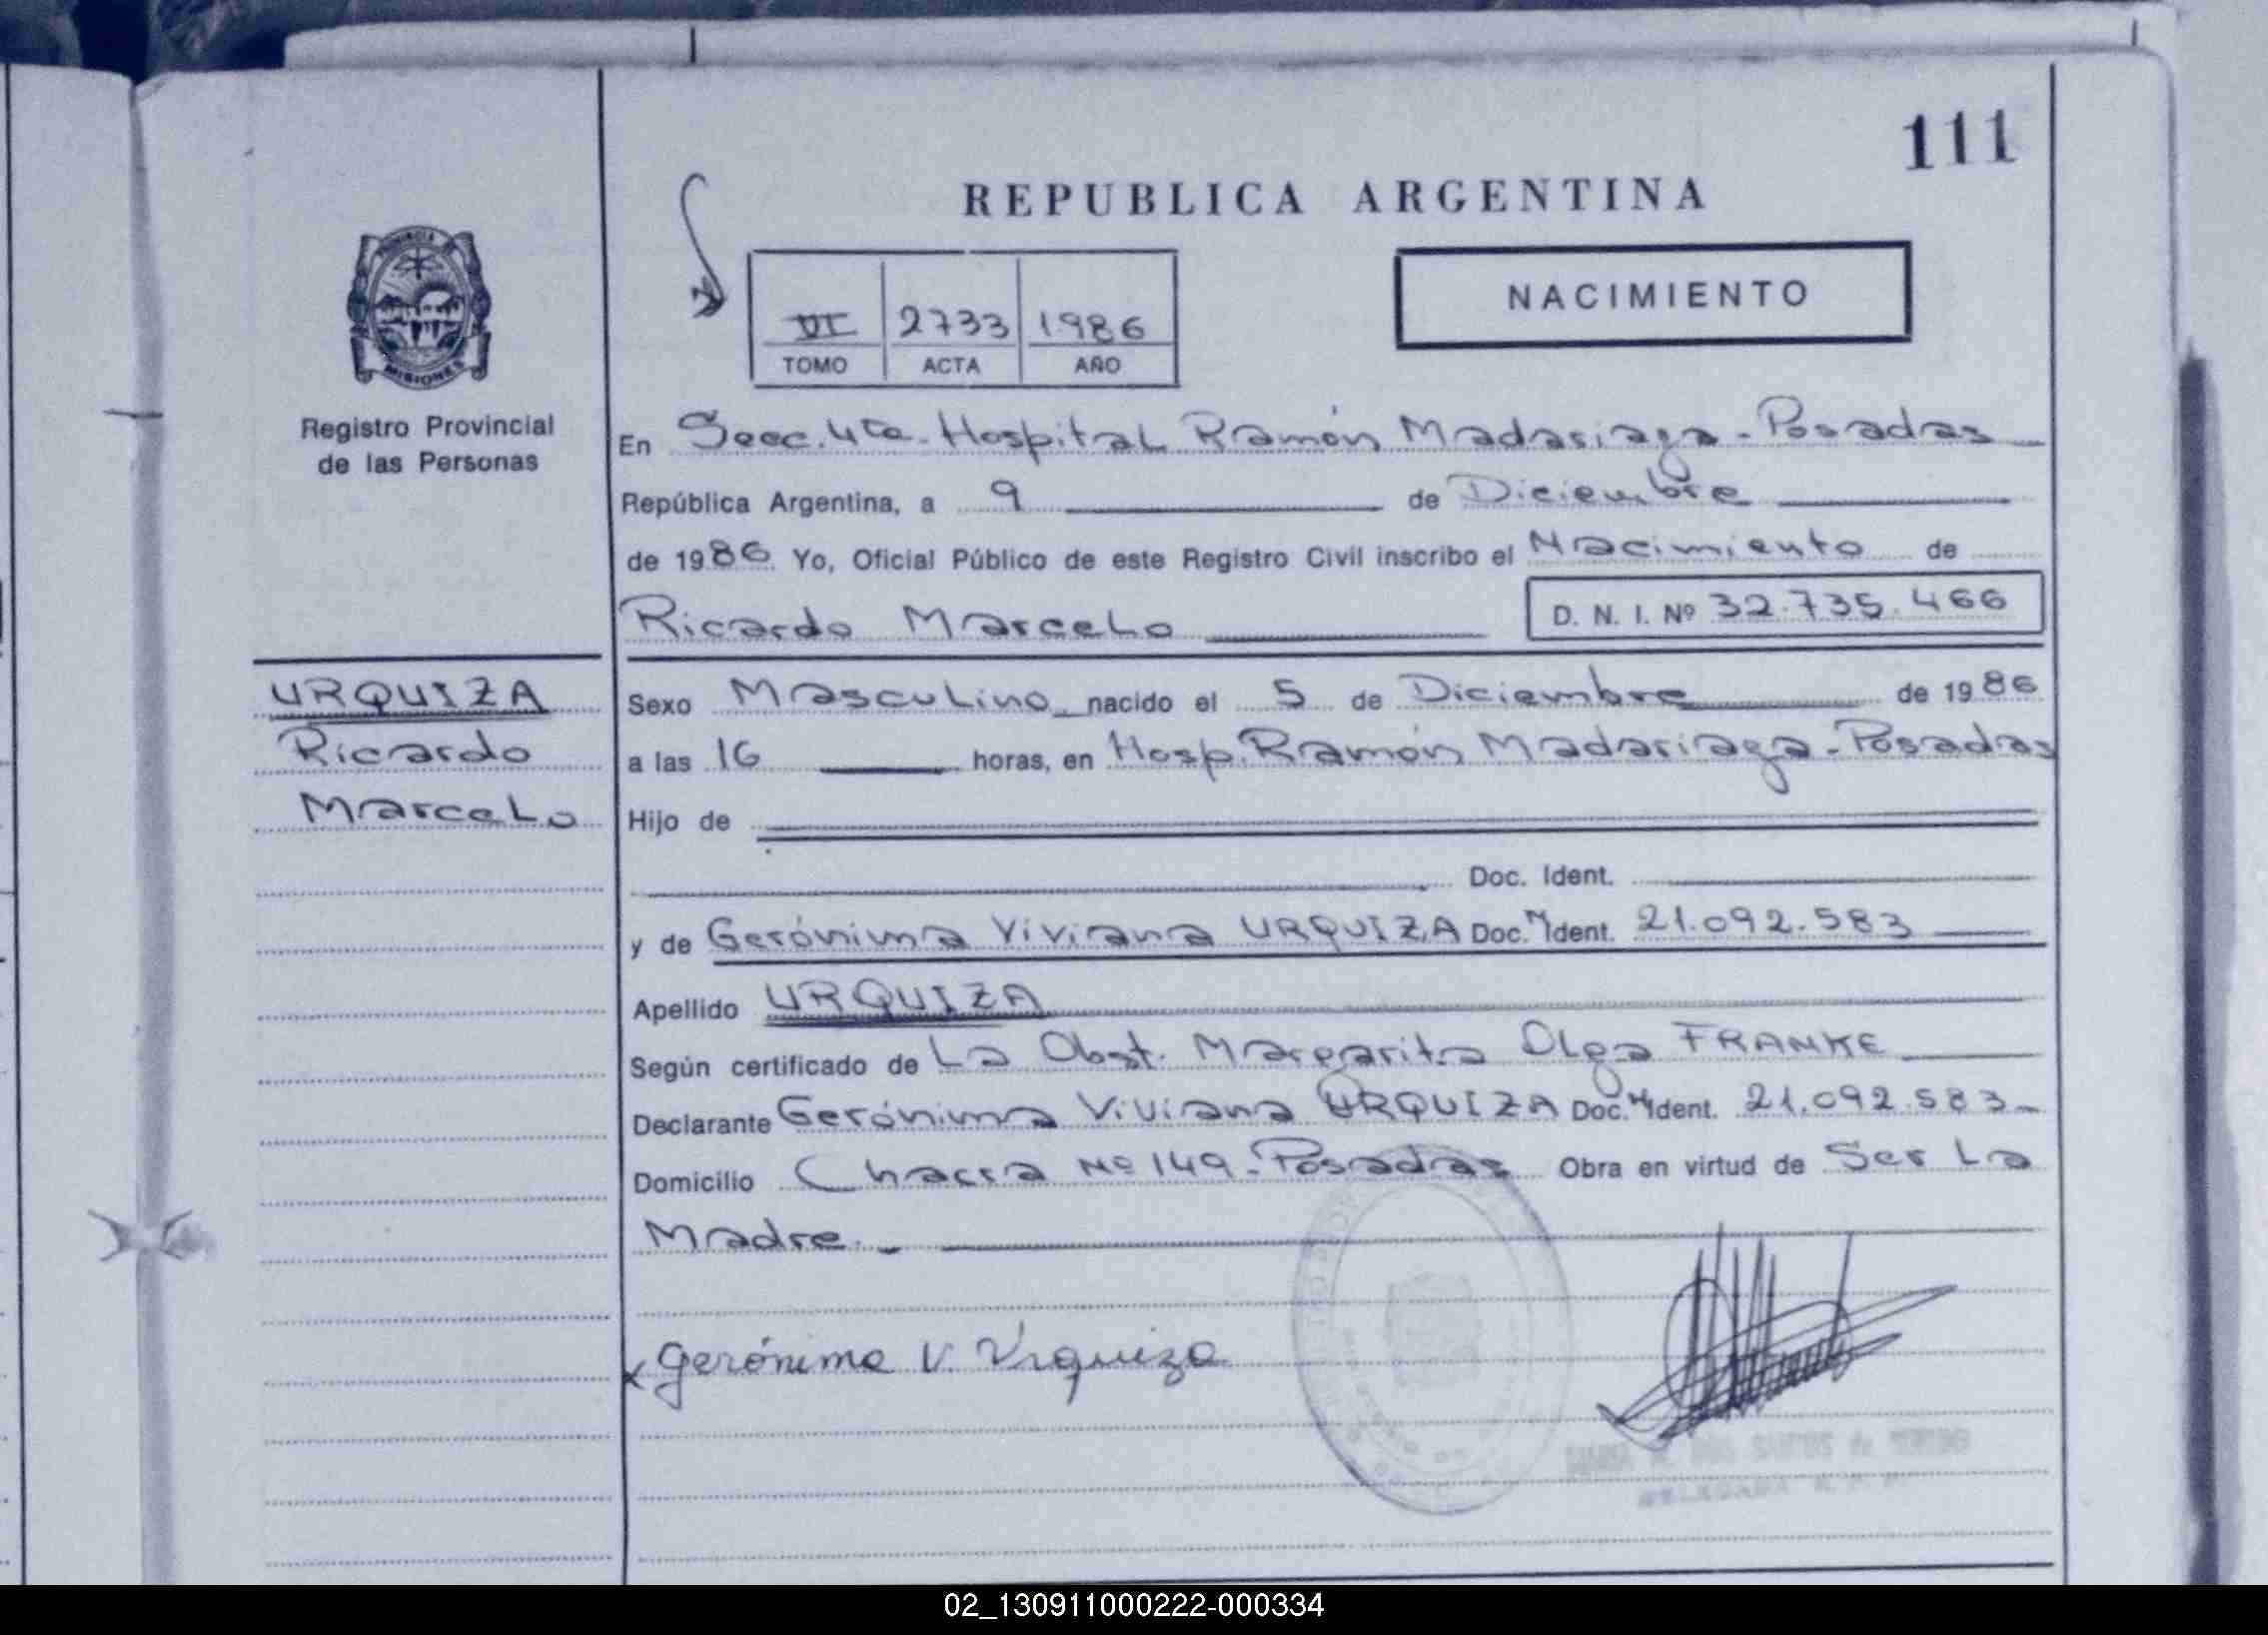 111
REPUBLICA ARGENTINA
NACIMIENTO
VI 2733 1986
TOMO ACTA AÑO
PROVINCIA DE
MISIONES
Registro Provincial
de las Personas
En Secc. 4ta. Hospital Ramón Madariaga - Posadas
República Argentina, a 9 de Diciembre
de 1986 Yo, Oficial Público de este Registro Civil inscribo el Nacimiento de
Ricardo Marcelo D. N. I. Nº 32.735.466
URQUIZA
Ricardo
Marcelo
Sexo Masculino nacido el 5 de Diciembre de 1986
a las 16 horas, en Hosp. Ramón Madariaga - Posadas
Hijo de
Doc. Ident.
y de Gerónima Viviana URQUIZA Doc. N Ident. 21.092.583
Apellido URQUIZA
Según certificado de La Obst. Margarita Olga FRANKE
Declarante Gerónima Viviana URQUIZA Doc. N Ident. 21.092.583-
Domicilio Chacra Nº 149 - Posadas Obra en virtud de Ser La
Madre. -
x Gerónima V. Urquiza
DOS SANTOS de
DELEGADA
02_130911000222-000334